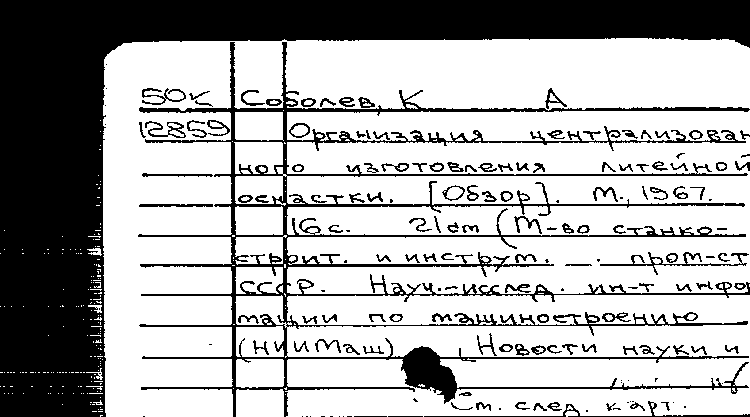 50к Соболев, К А
12859 Организация централизован
ного изготовления литейной
оснастки. [Обзор]. М., 1967.
16 с. 21 см (М-во станко-
строит. и инструм. пром-ст
СССР. Науч.-исслед. ин-т инфор
мации по машиностроению
(НИИМаш) Новости науки и
См. след. карт.